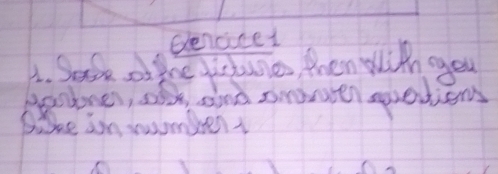 Exercice 1
1. Look at the pictures, then with you
partner, ask, and answer questions
like in number 1